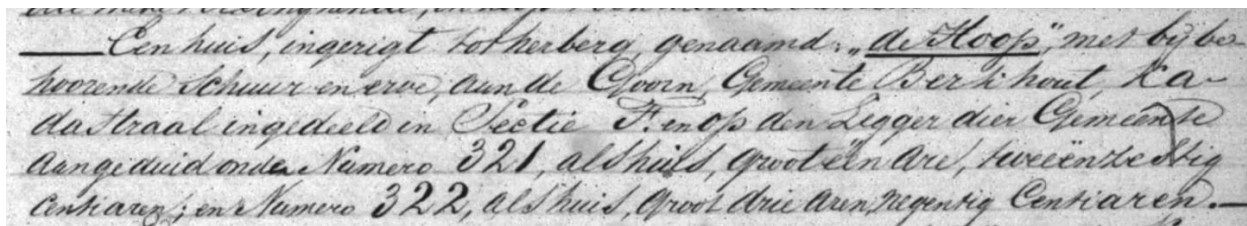 Een huis, ingerigt tot herberg, genaamd: „de Hoop", met bijbe-
hoorende Schuur en erve, aan de Goorn, Gemeente Berkhout, Ka-
dastraal ingedeeld in Sectie F. en op den Legger dier Gemeente
aangeduid onder Numero 321, als huis, groot één are, tweeënzestig
Centiaren; en Numero 322, als huis, groot drie aren, negentig Centiaren.—